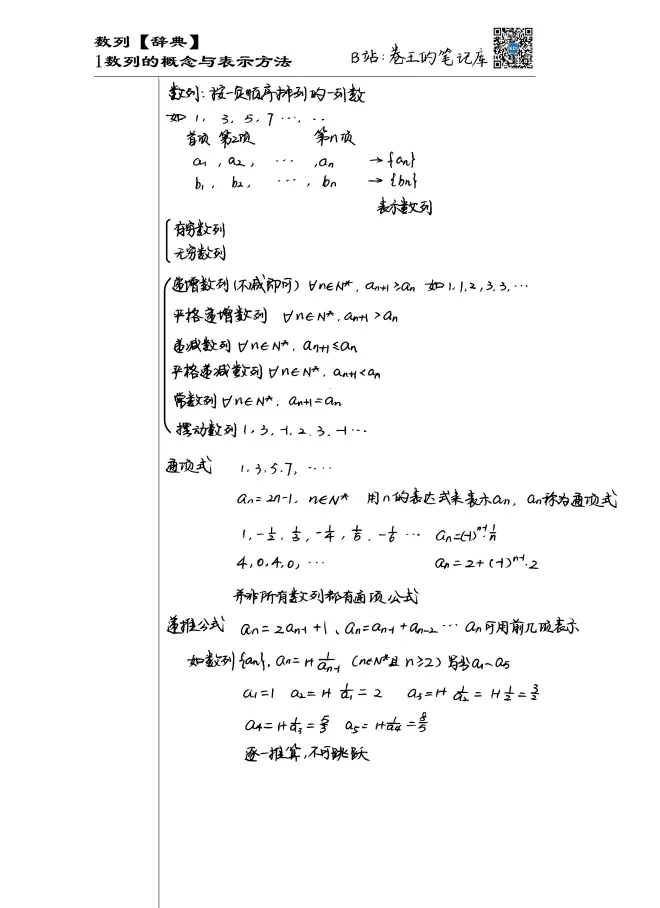 数列【辞典】
1数列的概念与表示方法
B站:卷王的笔记库
数列:按一定顺序排列的一列数
如 1, 3, 5, 7 ⋯, ‥
首项 第2项 第n项
a₁, a₂, ⋯, aₙ → {aₙ}
b₁, b₂, ⋯, bₙ → {bₙ}
表示数列
有穷数列
无穷数列
递增数列(不减即可) ∀n∈N*, aₙ₊₁≥aₙ 如1,1,2,3,3,⋯
严格递增数列 ∀n∈N*, aₙ₊₁>aₙ
递减数列 ∀n∈N*, aₙ₊₁≤aₙ
严格递减数列 ∀n∈N*, aₙ₊₁<aₙ
常数列 ∀n∈N*, aₙ₊₁=aₙ
摆动数列 1, 3, -1, 2, 3, -1 ⋯
通项式 1, 3, 5, 7, ⋯
aₙ=2n-1, n∈N* 用n的表达式来表示aₙ, aₙ称为通项式
1, -1/2, 1/3, -1/4, 1/5, -1/6 ⋯ aₙ=(-1)ⁿ⁻¹·1/n
4, 0, 4, 0, ⋯ aₙ=2+(-1)ⁿ⁻¹·2
并非所有数列都有通项公式
递推公式 aₙ=2aₙ₋₁+1、aₙ=aₙ₋₁+aₙ₋₂ ⋯ aₙ可用前几项表示
如数列{aₙ}, aₙ=1+1/aₙ₋₁ (n∈N*且n≥2) 写出a₁~a₅
a₁=1 a₂=1+1/a₁=2 a₃=1+1/a₂=1+1/2=3/2
a₄=1+1/a₃=5/3 a₅=1+1/a₄=8/5
逐一推算,不可跳跃